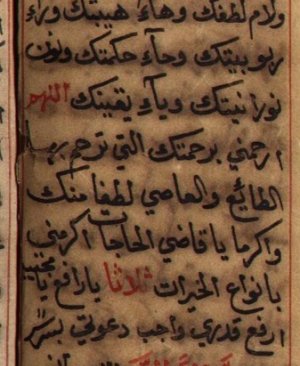 ولام لطفك وهاء هيبتك وراء
ربوبيتك وحاء حكمتك ونون
نورانيتك وياء يقينك اللهم
ارحمني برحمتك التي ترحم بها
الطائع والعاصي لطفا منك
واكرما يا قاضي الحاجات اكرمني
بانواع الخيرات ثلاثا يارافع يا مجيب
ارفع قدري واجب دعوتي بسر